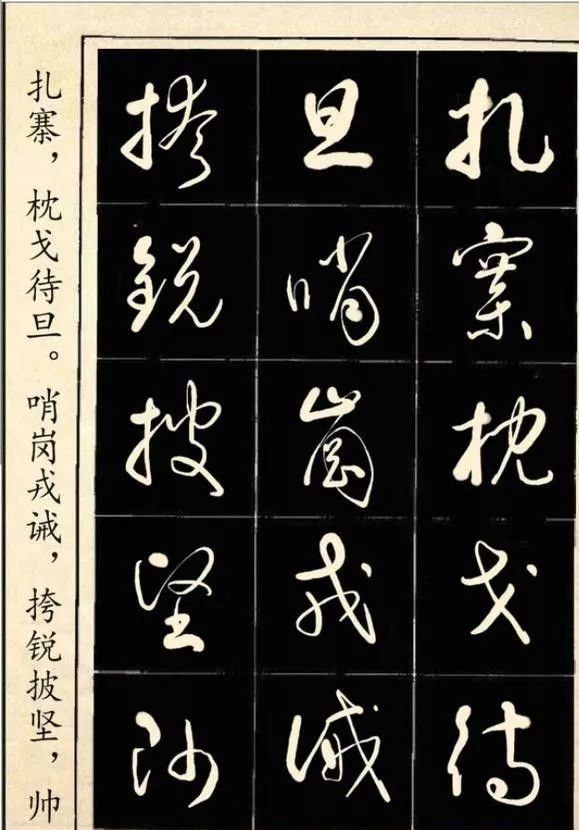 扎寨，枕戈待旦。哨岗戎诫，挎锐披坚，帅
扎寨枕戈待
旦哨崗戎诫
挎銳披坚帅